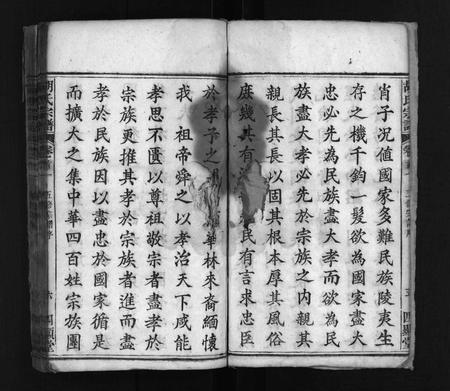 肖子況值國家多難民族陵夷生
存之機千鈞一髮欲為國家盡大
忠必先為民族盡大孝而欲為民
族盡大孝必先於宗族之內親其
親長其長以固其根本厚其風俗
庶幾其有 民有言求忠臣
於孝子之門 華林來裔緬懷
我 祖帝舜之以孝治天下咸能
孝思不匱以尊祖敬宗者盡孝於
宗族更推其孝於宗族者進而盡
孝於民族因以盡忠於國家循是
而擴大之集中華四百姓宗族團
胡氏宗譜